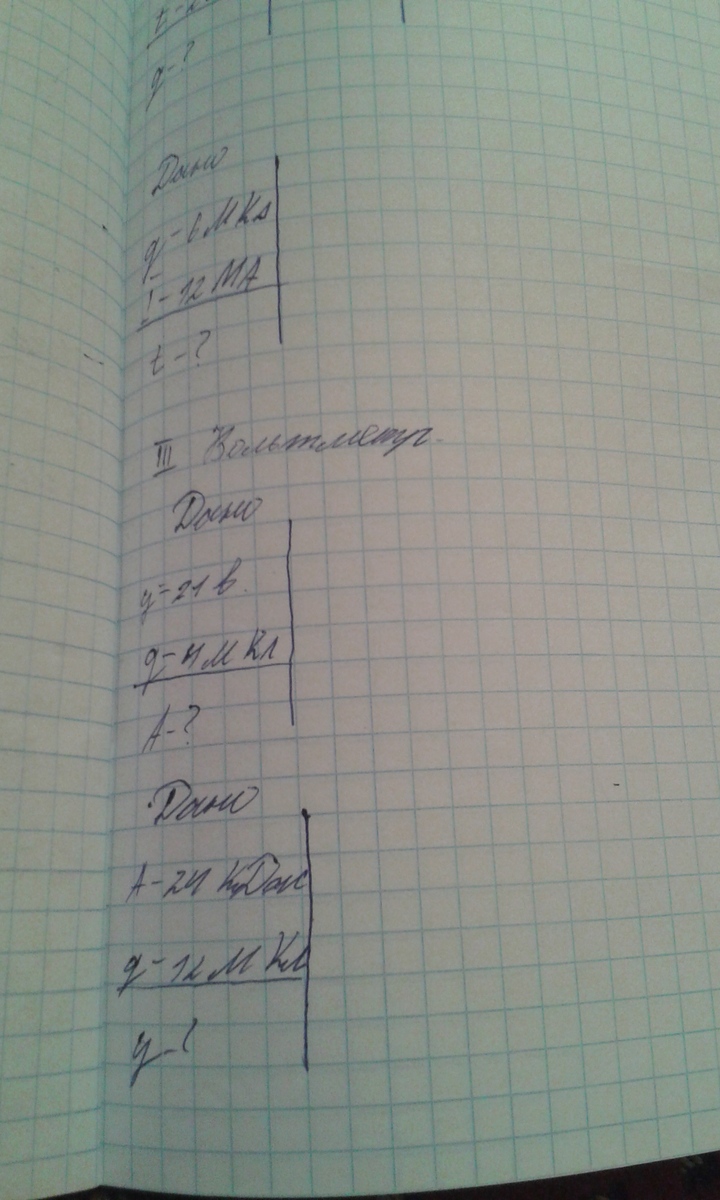 q-?
Дано
q-6 МКл
I-12 МА
t-?
III Вольтметр.
Дано
у-21 в.
q-4 м Кл
А-?
Дано
А-24 кДж
q-12 М Кл
у-?